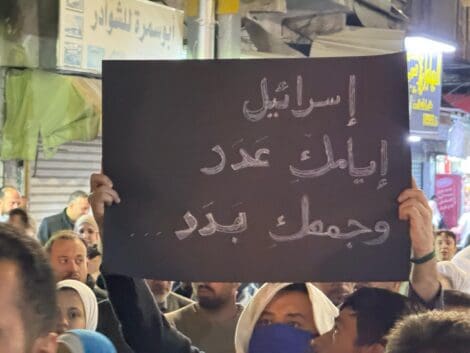 ابو سمرة للشوادر
إسرائيل
إيامكِ عَدَد
وجمعكِ بَدَد ...